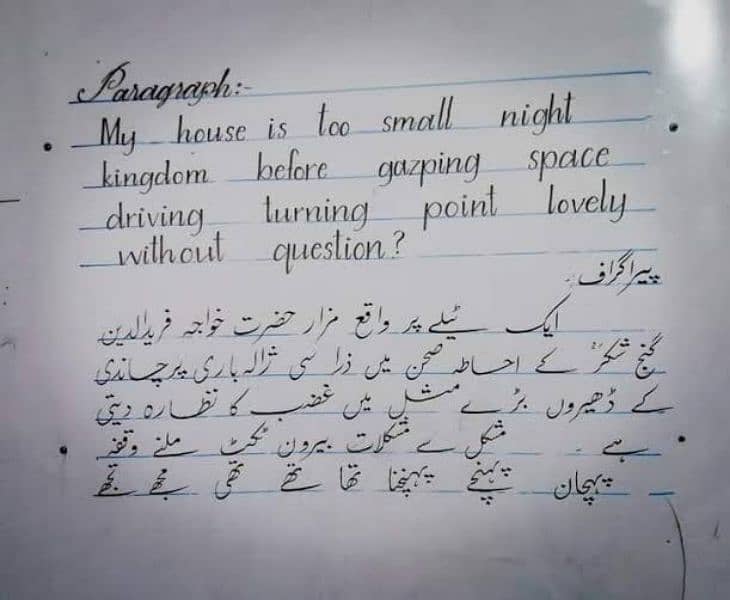 Paragraph:-
My house is too small night
kingdom before gazping space
driving turning point lovely
without question?
پیراگراف۔
ایک ٹیلے پر واقع مزار حضرت خواجہ فریدالدین
گنج شکرؒ کے احاطہ صحن میں ذرا سی ژالہ باری پر چاندی
کے ڈھیروں بڑے مثل میں غضب کا نظارہ دیتی
ہے ۔ مشکل سے مشکلات بیرون ٹکٹ ملنے وقفہ
پہچان پہنچے پہنچنا تھا تھے تھی مجھ تجھ